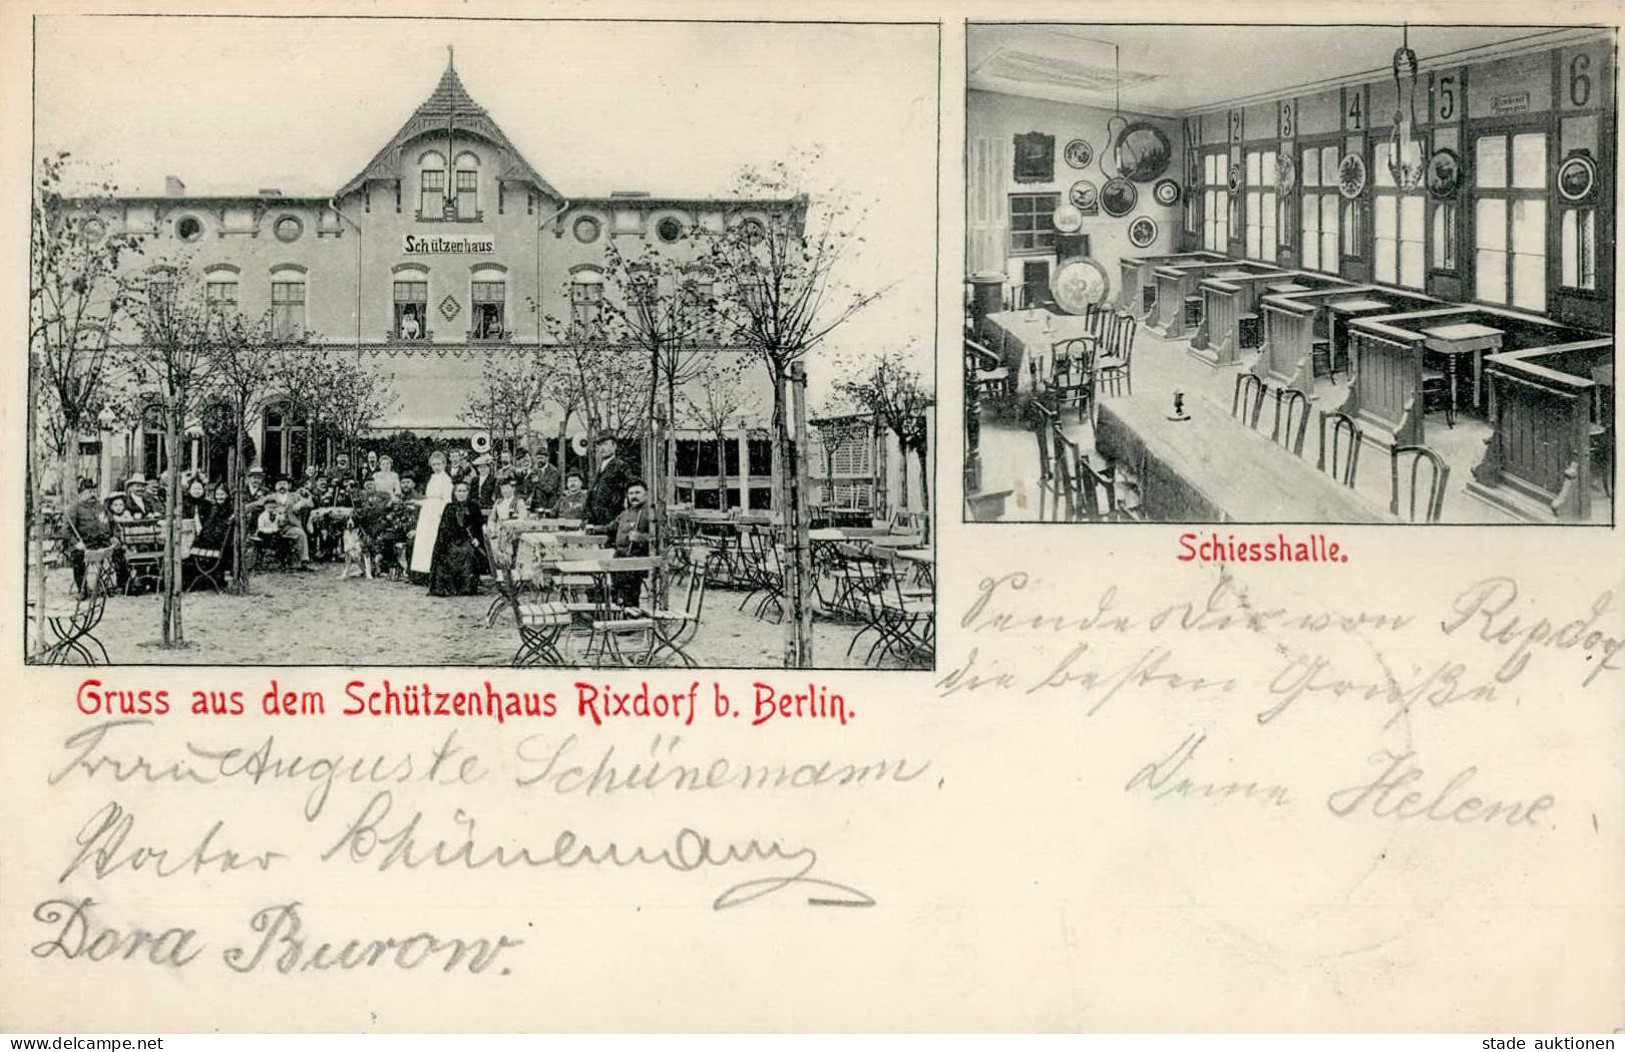 Schützenhaus.
2
3
4
5
6
Schiesshalle.
Gruss aus dem Schützenhaus Rixdorf b. Berlin.
Sende Dir von Rixdorf
die besten Grüße.
Deine Helene.
Frau Auguste Schünemann.
Vater Schünemann
Dora Burow.
www.delcampe.net
stade auktionen